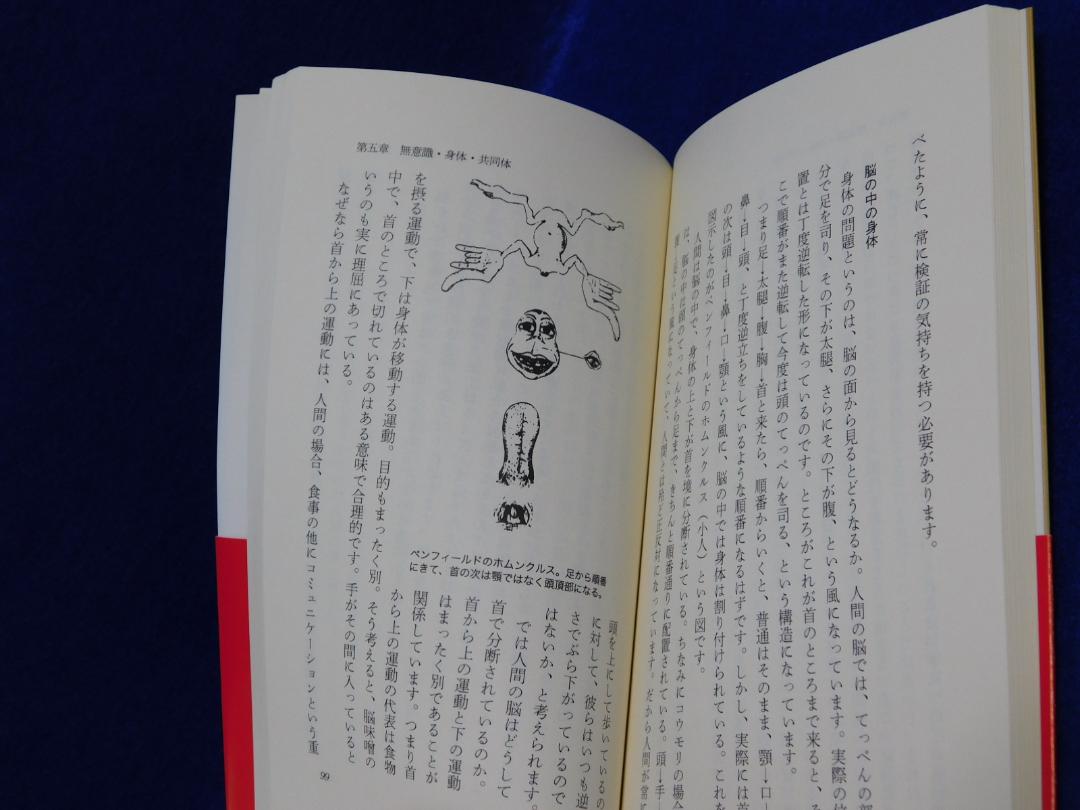 べたように、常に検証の気持ちを持つ必要があります。
脳の中の身体
身体の問題というのは、脳の面から見るとどうなるか。人間の脳では、てっぺんの部
分で足を司り、その下が太腿、さらにその下が腹、という風になっています。実際の位
置とは丁度逆転した形になっているのです。ところがこれが首のところまで来ると、そ
こで順番がまた逆転して今度は頭のてっぺんを司る、という構造になっています。
つまり足→太腿→腹→胸→首と来たら、順番からいくと、普通はそのまま、顎→口→
鼻→目→頭、と丁度逆立ちをしているような順番になるはずです。しかし、実際には首
の次は頭→目→鼻→口→顎という風に、脳の中では身体は割り付けられている。これを
図示したのがペンフィールドのホムンクルス（小人）という図です。
人間は脳の中で、身体の上と下が首を境に分断されている。ちなみにコウモリの場合
は、脳の中は頭のてっぺんから足まで、きちんと順番通りに配置されている。頭→手→
という風になっていて、人間とは殆ど正反対になっています。だから人間が常に
第五章　無意識・身体・共同体
ペンフィールドのホムンクルス。足から順番
にきて、首の次は顎ではなく頭頂部になる。
頭を上にして歩いているの
に対して、彼らはいつも逆
さでぶら下がっているので
はないか、と考えられます。
では人間の脳はどうして
首で分断されているのか。
首から上の運動と下の運動
はまったく別であることが
関係しています。つまり首
から上の運動の代表は食物
を摂る運動で、下は身体が移動する運動。目的もまったく別。そう考えると、脳味噌の
中で、首のところで切れているのはある意味で合理的です。手がその間に入っていると
いうのも実に理屈にあっている。
なぜなら首から上の運動には、人間の場合、食事の他にコミュニケーションという重
99